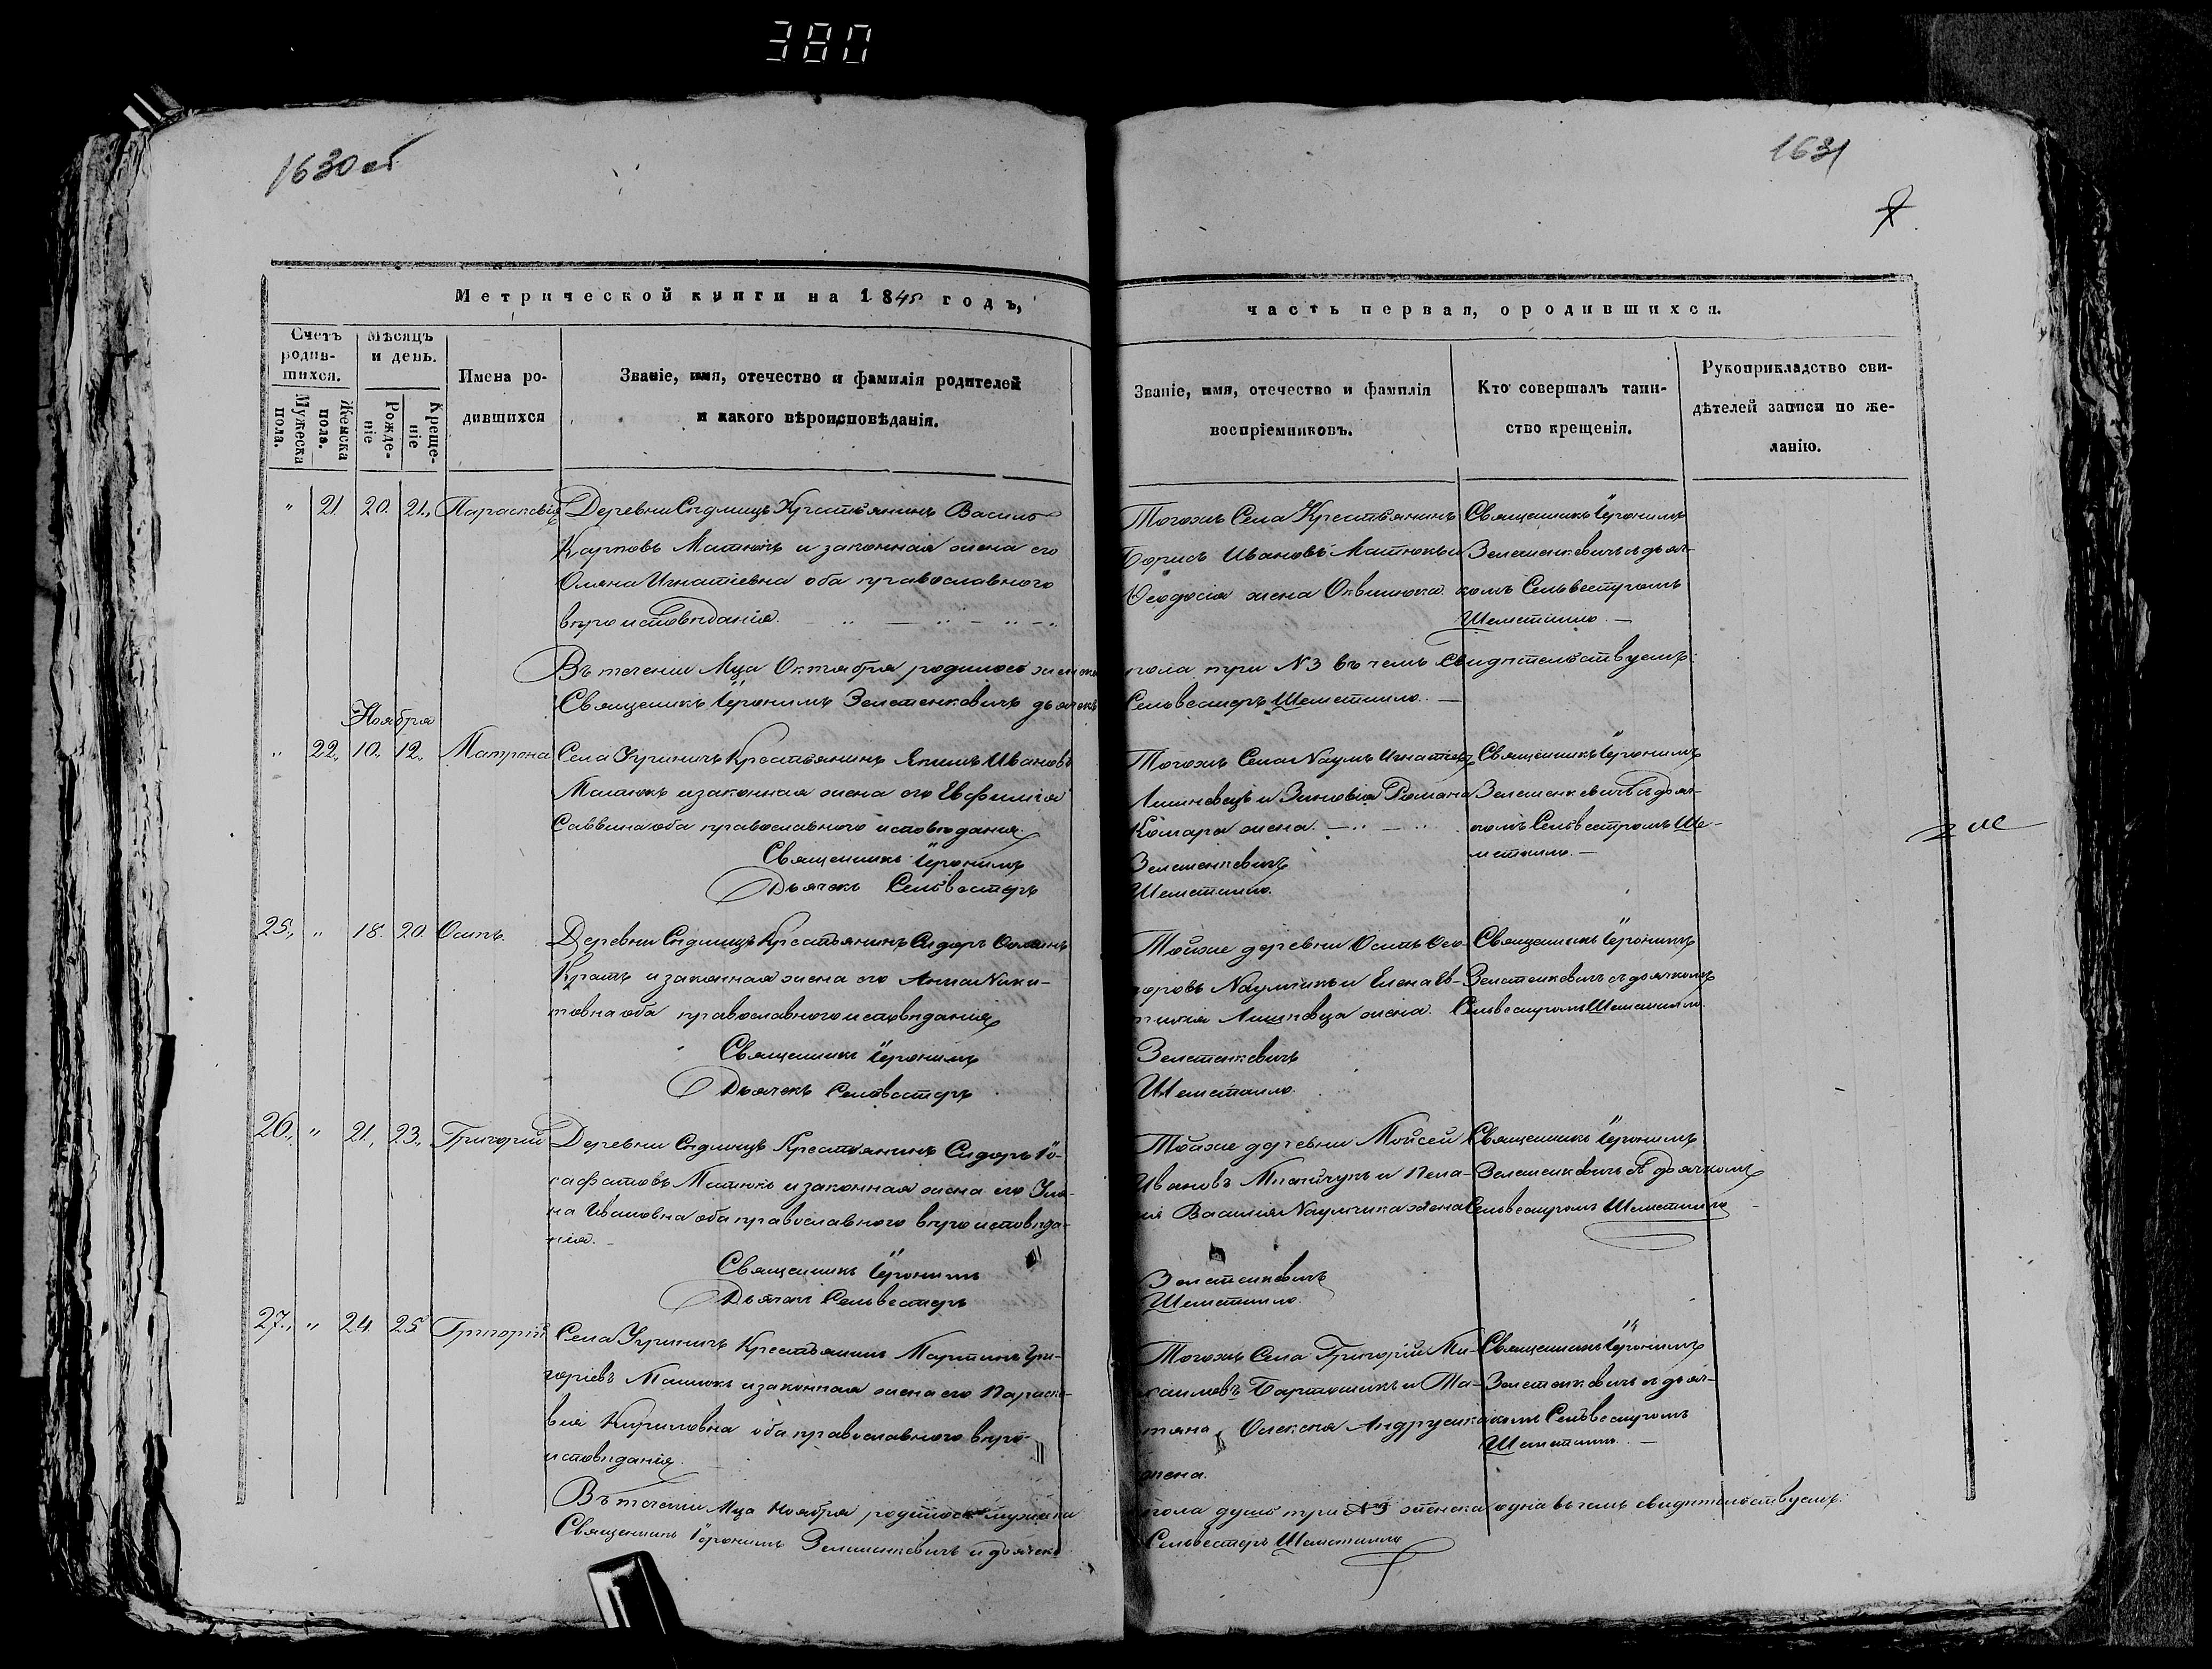 380
1630 об
1631
Метрической книги на 1848 годъ,
часть первая, ородившихся.
Счетъ родив-шихся.
Мужеска пола.
Женска пола.
Мѣсяцъ и день.
Рожде-ніе
Креще-ніе
Имена ро-
дившихся
Званіе, имя, отечество и фамилія родителей
и какого вѣроисповѣданія.
Званіе, имя, отечество и фамилія
воспріемниковъ.
Кто совершалъ таин-
ство крещенія.
Рукоприкладство сви-
дѣтелей записи по же-
ланію.
" 21 20. 21., Параскевія
Деревни Сѣдлищъ Крестьянинъ Василь
Карповъ Матюкъ и законная жена его
Оляна Игнатіевна оба православного
вѣроисповѣданія.
Тогожъ Села Крестьянинъ
Борисъ Ивановъ Матюкъ и
Ѳеодосія жена
Священникъ Іеронимъ
съ дьяч-
комъ Сельвестромъ
Шеметилло.
Въ теченіи Мца Октября родилось женска
пола три №3 въ чемъ Свидѣтельствуемъ:
Священикъ Іеронимъ дьячекъ
Сельвестеръ Шеметилло.
Ноября
" 22., 10., 12., Матрона
Села Угриничъ Крестьянинъ Якимъ Ивановъ
Матюкъ изаконная жена его Евфимія
Саввина оба православного исповѣданія.
Священникъ Іеронимъ
Дьячекъ Сельвестеръ
Тогожъ Села Наумъ Игнатіевъ
и Зиновія Романа
Комара жена.
Шеметилло.
Священникъ Іеронимъ
съ дьяч-
комъ Сельвестромъ Ше-
метилло.
25., " 18. 20. Осипъ.
Деревни Сѣдлищъ Крестьянинъ Сидоръ
и законная жена его Анна Ники-
товна оба православного исповѣданія
Священникъ Іеронимъ
Дьячекъ Сельвестеръ
Тойже деревни Осипъ Ѳео-
доровъ Наумчикъ и Елена
жена.
Шеметилло.
Священникъ Іеронимъ
съ дьячкомъ
Сельвестромъ Шеметилло.
26., " 21., 23., Григорій
Деревни Сѣдлищъ Крестьянинъ Сидоръ Іо-
сафатовъ Матюкъ изаконная жена его Улья-
на Ивановна оба православного вѣроисповѣда-
нія.
Священникъ Іеронимъ
Дьячекъ Сельвестеръ
Тойже деревни Мойсей
Ивановъ и Пела-
гія Василія Наумчика жена
Шеметилло.
Священникъ Іеронимъ
съ дьячкомъ
Сельвестромъ Шеметилло
27., " 24. 25 Григорій
Села Угриничъ Крестьянинъ Мартинъ Гри-
горіевъ Матюкъ изаконная жена его Параске-
вія Кириловна оба православного вѣро-
исповѣданія
Тогожъ Села Григорій Ми-
хаиловъ Бартошикъ и Та-
тяна Олексѣя
жена.
Священникъ Іеронимъ
съ дьяч-
комъ Сельвестромъ
Шеметилло.
Въ теченіи Мца Ноября родилось мужеска
пола душъ три №3 женска одна въ чемъ свидѣтельствуемъ:
Священникъ Іеронимъ и дьячекъ
Сельвестеръ Шеметилло